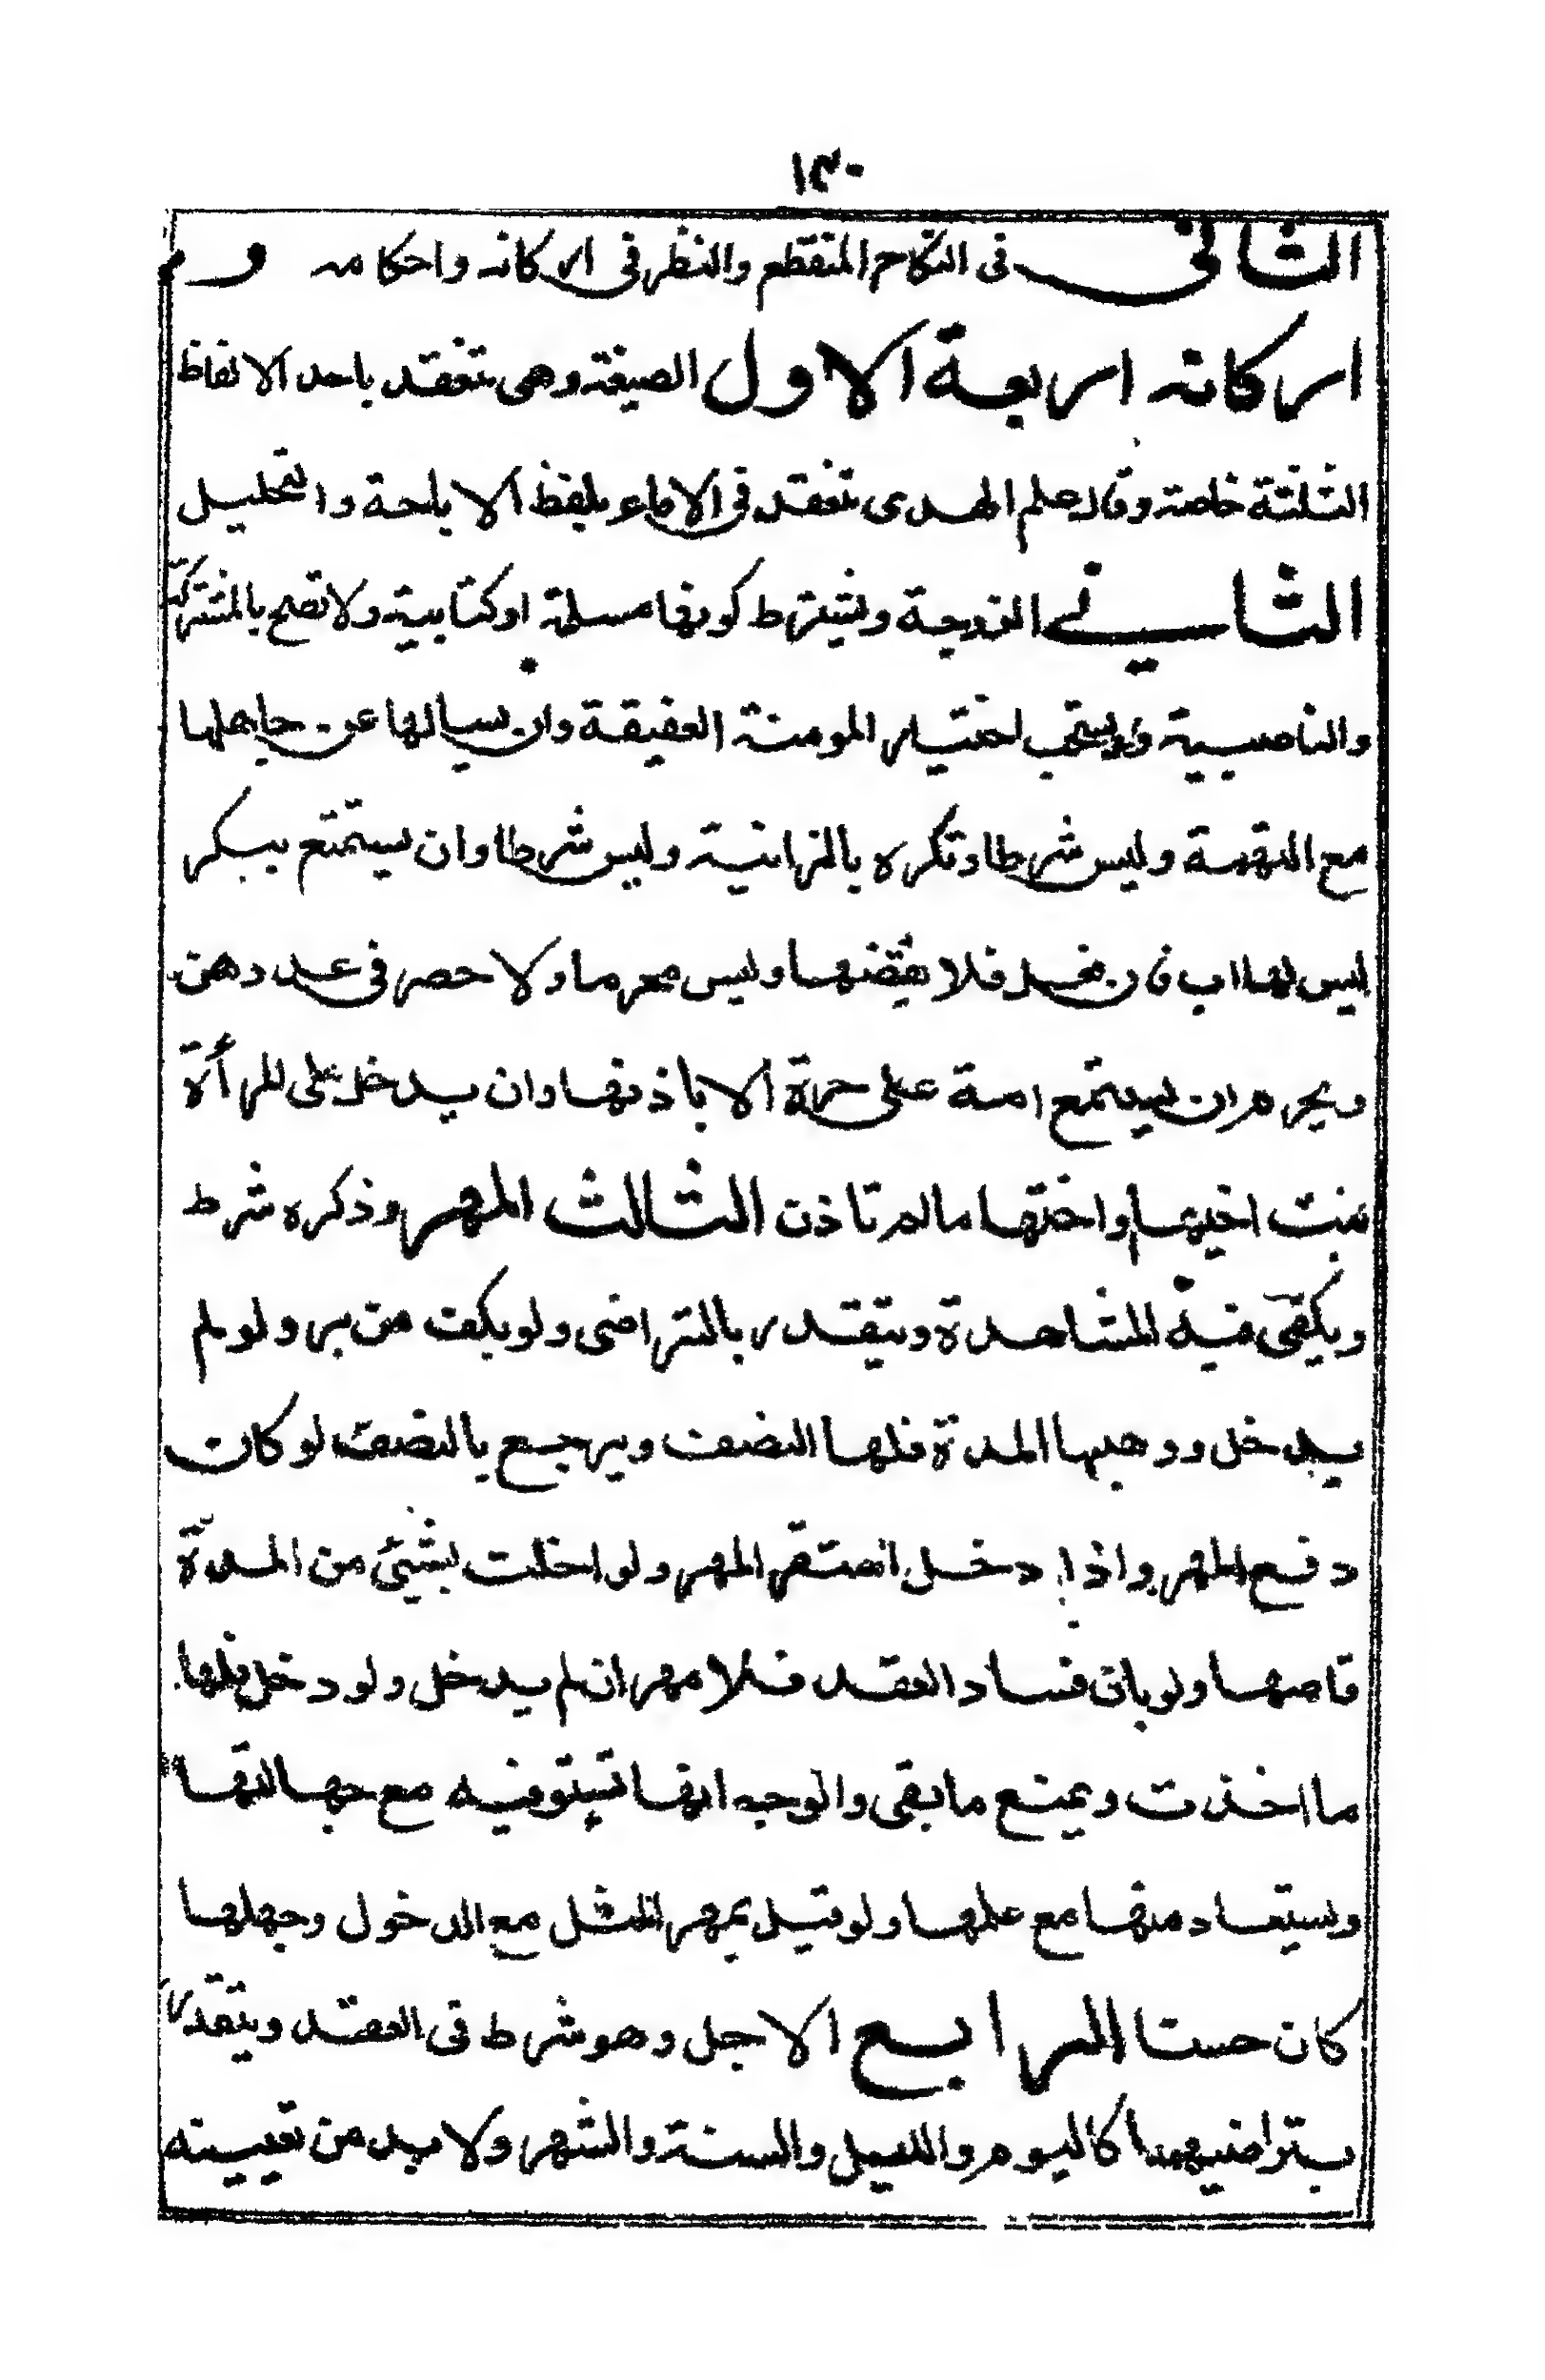 ١٣٠
الثانى فى النكاح المنقطع والنظر فى اركانه واحكامه و
اركانه اربعة الاول الصيغة وهى تنعقد باحد الالفاظ
الثلثة خاصة وقال علم الهدى تنعقد فى الاماء بلفظ الاباحة والتحليل
الثانے الزوجة ويشترط كونها مسلمة او كتابية ولا تصح بالمشركة
والناصبية ويستحب اختيار المومنة العفيفة وان يسالها عن حالها
مع التهمة وليس شرطا وتكره بالزانية وليس شرطا وان يستمتع ببكر
ليس لها اب فان فعل فلا يقتضها وليس محرما ولا حصر فى عددهن
ويحرم ان يستمتع امة على حرة الا باذنها وان يدخل على المرأة
بنت اخيها واختها ما لم تاذن الثالث المهر وذكره شرط
ويكفى فيه المشاهدة ويتقدر بالتراضى ولو بكف من بر ولو لم
يدخل ووهبها المدة فلها النصف ويرجع بالنصف لو كان
دفع المهر واذا دخل استقر المهر ولو اخلت بشيئ من المدة
قاصها ولو بان فساد العقد فلا مهر ان لم يدخل ولو دخل فلها
ما اخذت ويمنع ما بقى والوجه انها تستوفيه مع جهالتها
ويستعاد منها مع علمها ولو قيل بمهر المثل مع الدخول وجهلها
كان حسنا الرابع الاجل وهو شرط فى العقد ويتقدر
بتراضيهما كاليوم والليل والسنة والشهر ولا بد من تعيينه